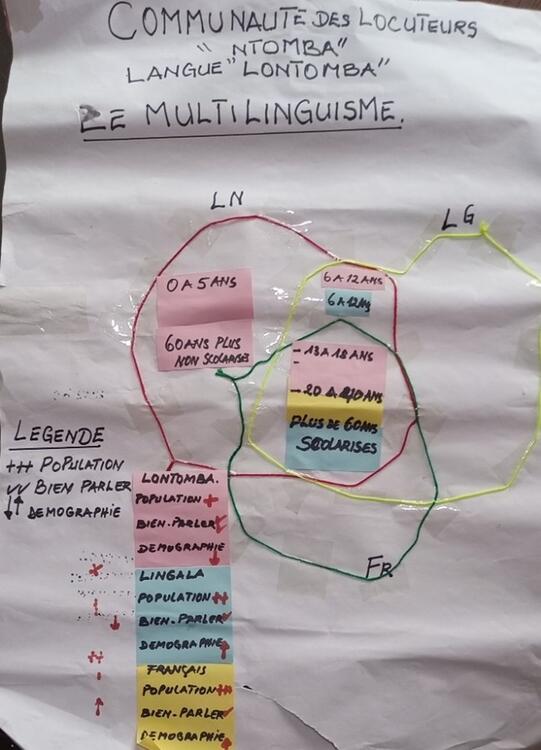 COMMUNAUTÉ DES LOCUTEURS
"NTOMBA"
LANGUE "LONTOMBA"
LE MULTILINGUISME.
LN
LG
0 A 5 ANS
6 A 12 ANS
6 A 12 ANS
60 ANS PLUS
NON SCOLARISES
- 13 A 18 ANS
-
PLUS DE 60 ANS
SCOLARISES
FR
LEGENDE
+++ POPULATION
✓✓ BIEN PARLER
↓↑ DEMOGRAPHIE
LONTOMBA.
POPULATION +
BIEN-PARLER
DEMOGRAPHIE ↓
LINGALA
POPULATION ++
BIEN-PARLER ✓
DEMOGRAPHIE ↑
FRANÇAIS
POPULATION +++
BIEN-PARLER ✓
DEMOGRAPHIE ↑